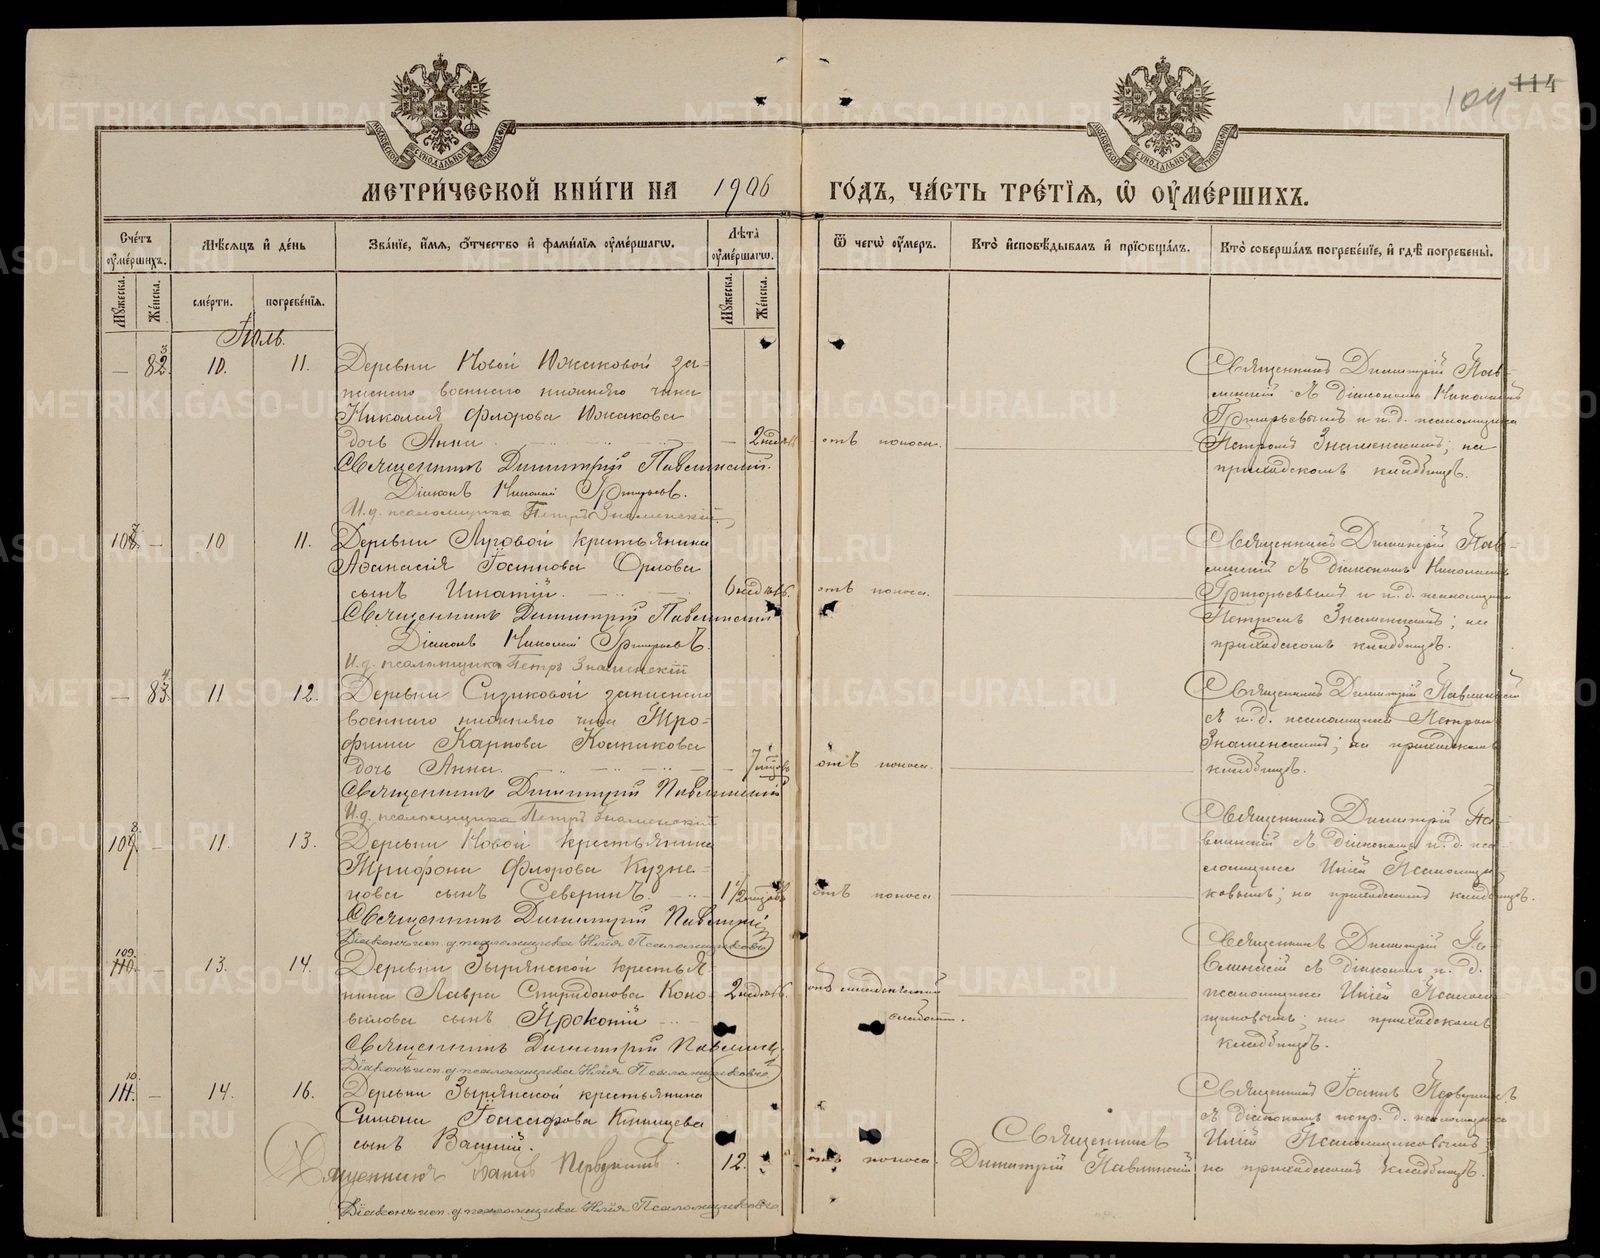 114
104
МЕТРИ́ЧЕСКОЙ КНИ́ГИ НА 1906 ГО́ДЪ, ЧА́СТЬ ТРЕ́ТІѦ, Ѡ҆ ОУ҆МЕ́РШИХЪ.
Сче́тъ оу҆ме́ршихъ.
Мѣ́сѧцъ и҆ де́нь
Зва́нїе, и҆́мѧ, ѻ҆́тчество и҆ фами́лїѧ оу҆ме́ршагѡ.
Лѣ́та оу҆ме́ршагѡ.
Ѿ чегѡ̀ оу҆́меръ.
Кто̀ и҆сповѣ́дывалъ и҆ прїѡбща́лъ.
Кто̀ соверша́лъ погребе́нїе, и҆ гдѣ̀ погребены̀.
Мꙋ́жеска.
Же́нска.
сме́рти.
погребе́нїѧ.
Мꙋ́жеска.
Же́нска.
Іюль.
— 83. 10. 11. Деревни Новой Южаковой за-
паснаго военнаго нижняго чина
Николая Флорова Южакова
дочь Анна. — 2 нед. отъ поноса.
Священникъ Димитрій Павлинскій.
Діаконъ Николай Григорьевъ.
И.д. псаломщика Петръ Знаменскій
Священникъ Димитрій Пав-
линскій съ діакономъ Николаемъ
Григорьевымъ и и.д. псаломщика
Петромъ Знаменскимъ; на
приходскомъ кладбищѣ.
107. — 10 11. Деревни Луговой крестьянина
Аѳанасія Іоаннова Орлова
сынъ Игнатій. 6 недѣль отъ поноса.
Священникъ Димитрій Павлинскій
Діаконъ Николай Григорьевъ.
И.д. псаломщика Петръ Знаменскій
Священникъ Димитрій Пав-
линскій съ діакономъ Николаемъ
Григорьевымъ и и.д. псаломщика
Петромъ Знаменскимъ; на
приходскомъ кладбищѣ.
— 84. 11 12. Деревни Сизиковой запаснаго
военнаго нижняго чина Тро-
фима Карпова
дочь Анна. — 7 мѣсяцевъ отъ поноса.
Священникъ Димитрій Павлинскій
И.д. псаломщика Петръ Знаменскій
Священникъ Димитрій Павлинскій
съ и.д. псаломщика Петромъ
Знаменскимъ; на приходскомъ
кладбищѣ.
108. — 11. 13. Деревни Новой крестьянина
Трифона Флорова Кузне-
цова сынъ Северинъ. 1 1/2 мѣсяцевъ отъ поноса
Священникъ Димитрій Павлинскій
Діаконъ исп. д. псаломщика Илія Псаломщиковъ
Священникъ Димитрій Па-
влинскій съ діакономъ и.д. пса-
ломщика Иліей Псаломщи-
ковымъ; на приходскомъ кладбищѣ.
109. — 13. 14. Деревни Зырянской крестья-
нина Лавра Спиридонова Коно-
валова сынъ Прокопій 2 недѣль отъ младенческой слабости.
Священникъ Димитрій Павлинскій
Діаконъ исп. д. псаломщика Илія Псаломщиковъ
Священникъ Димитрій Па-
влинскій съ діакономъ и. д.
псаломщика Иліей Псалом-
щиковымъ; на приходскомъ
кладбищѣ.
110. — 14. 16. Деревни Зырянской крестьянина
Симона Іоасафова
сынъ Василій. 12. отъ поноса.
Священникъ Іоаннъ Первушинъ.
Діаконъ исп. д. псаломщика Илія Псаломщиковъ
Священникъ
Димитрій Павлинскій
Священникъ Іоаннъ Первушинъ
съ діакономъ испр. д. псаломщика
Иліей Псаломщиковымъ;
на приходскомъ кладбищѣ.
METRIKI.GASO-URAL.RU